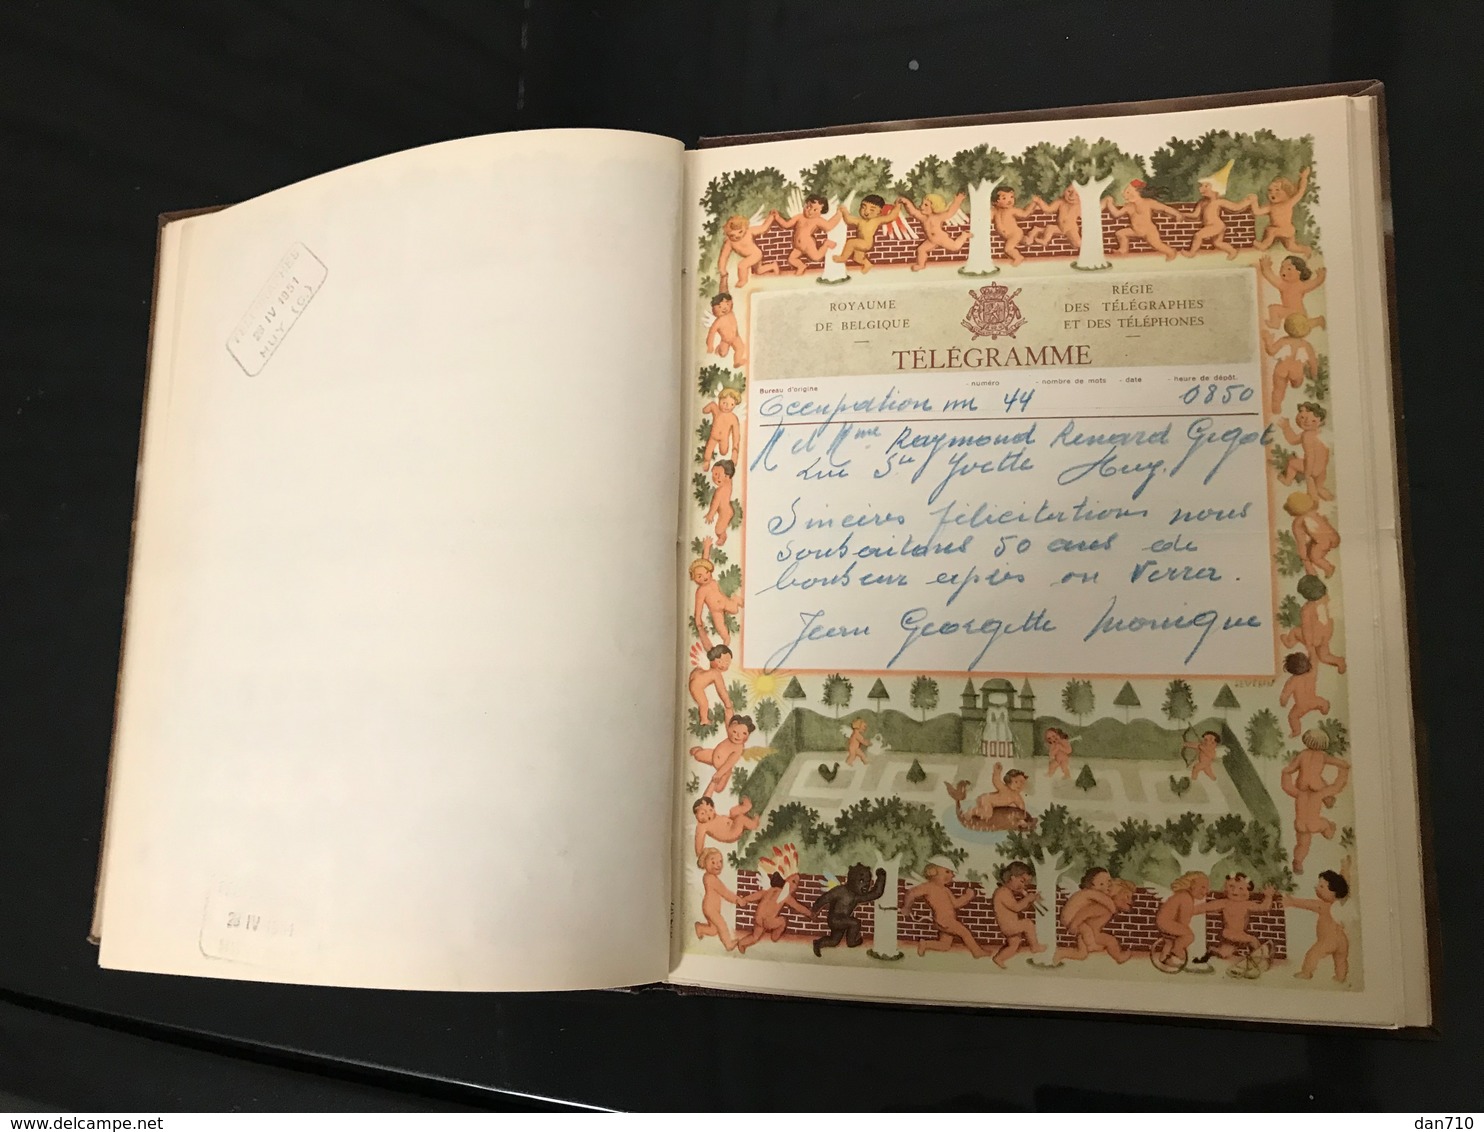 28 IV 1951
HUY (C.)
ROYAUME
DE BELGIQUE
RÉGIE
DES TÉLÉGRAPHES
ET DES TÉLÉPHONES
TÉLÉGRAMME
Bureau d'origine - numéro - nombre de mots - date - heure de dépôt.
44 0850
M et Mme Raymond Renard Gigot
Ste Yvette Huy.
Sincères félicitations nous
souhaitons 50 ans de
bonheur après on verra.
Jean Georgette Monique
28 IV
dan710